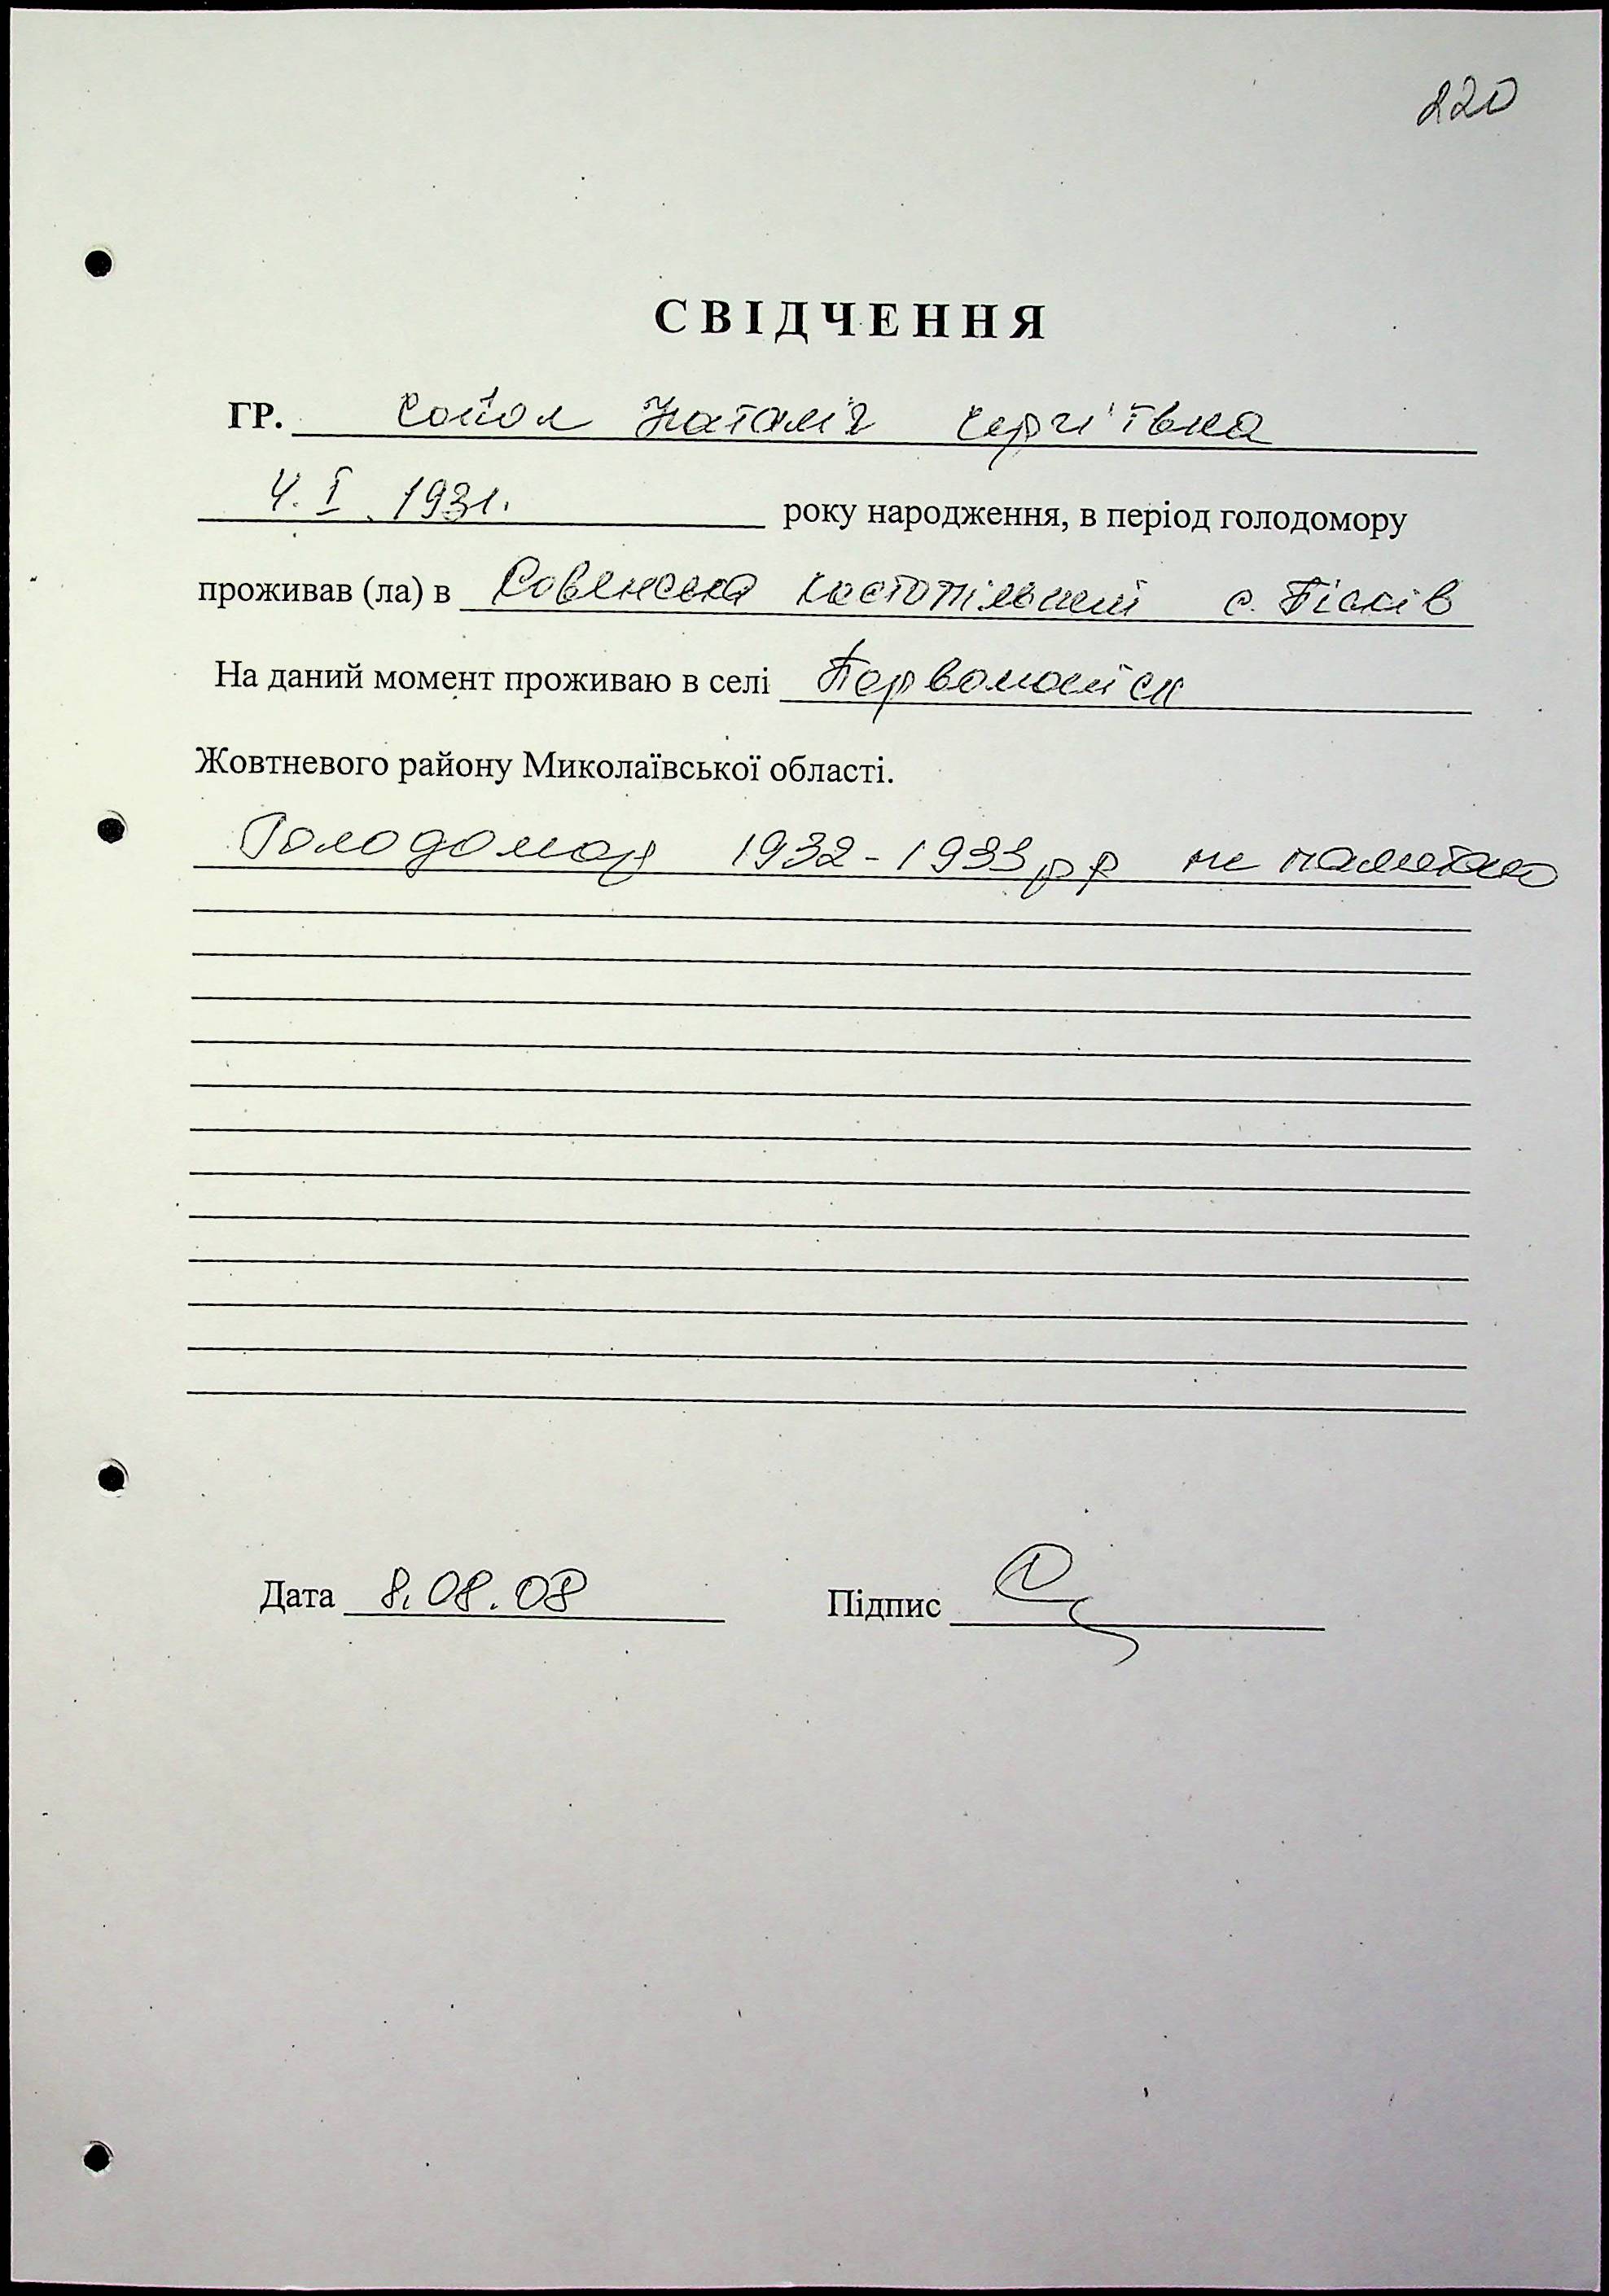 220
СВІДЧЕННЯ
ГР. Сойол Наталія Сергіївна
4.I.1931. року народження, в період голодомору
проживав (ла) в Ровенська Костопільський с. Пісків
На даний момент проживаю в селі Первомайськ
Жовтневого району Миколаївської області.
Голодомор 1932-1933 рр не памятаю
Дата 8.08.08 Підпис